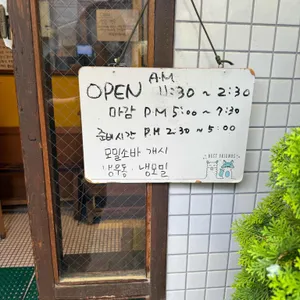 A.M
OPEN 11:30 ~ 2:30
마감 P.M 5:00 ~ 9:30
준비시간 P.M 2:30 ~ 5:00
모밀소바 개시
냉우동. 냉모밀
BEST FRIENDS